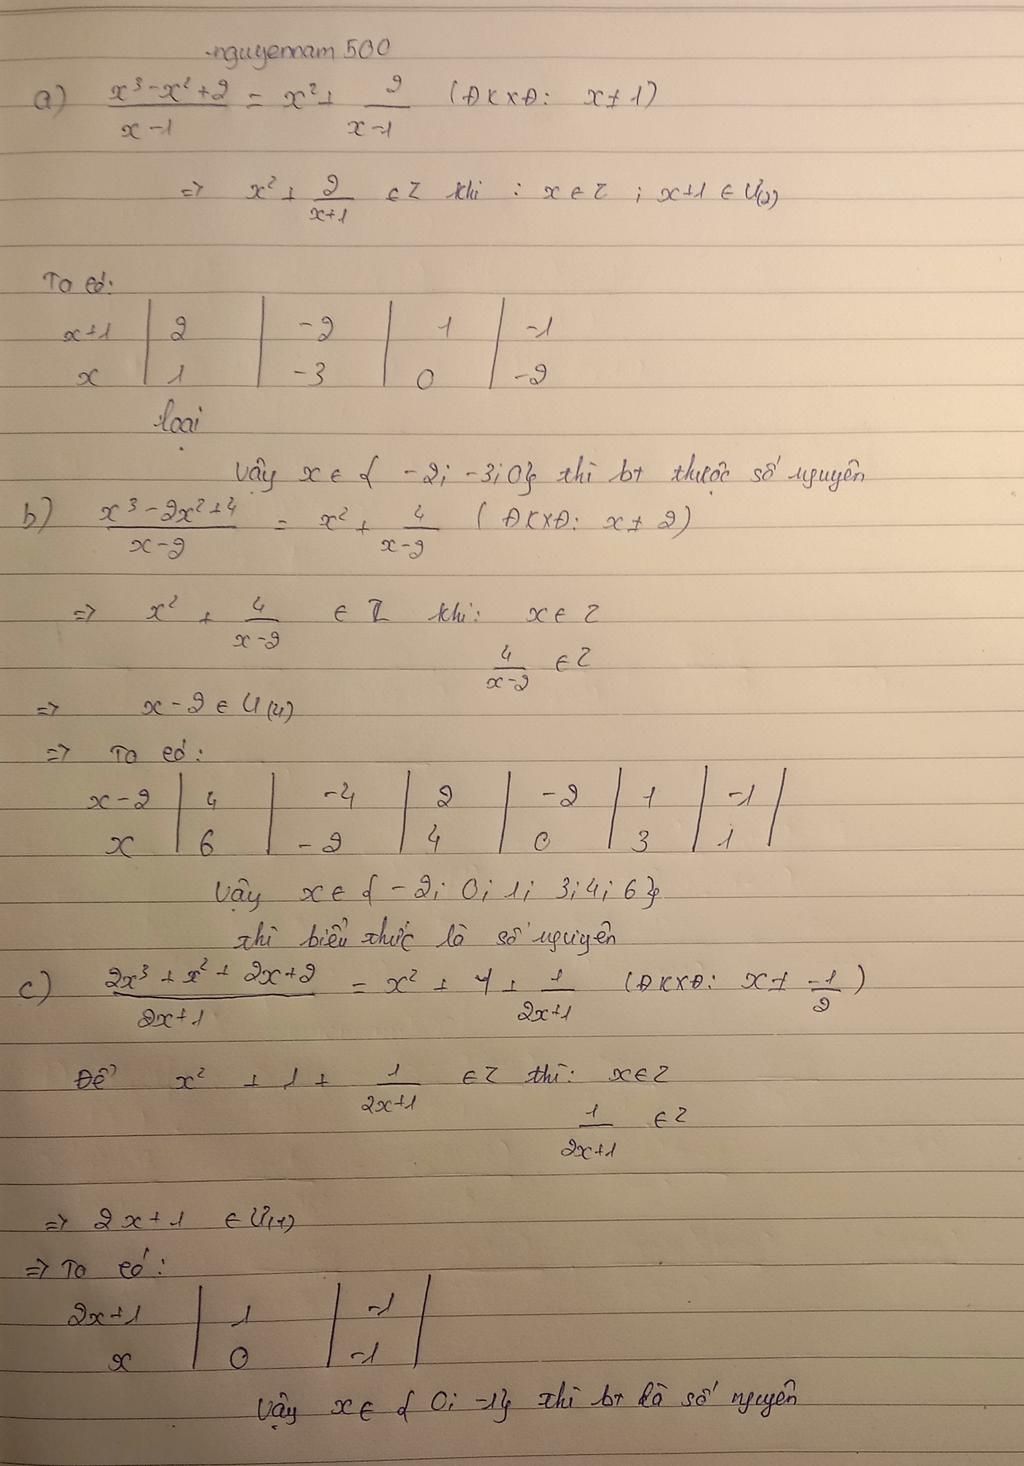 nguyennam500
a) x³-x²+2 / x-1 = x² + 2 / x-1 (ĐKXĐ: x ≠ 1)
=> x² + 2 / x+1 ∈ Z khi : x ∈ Z ; x+1 ∈ Ư(2)
Ta có:
x+1 | 2 | -2 | 1 | -1
x | 1 | -3 | 0 | -2
loại
Vậy x ∈ { -2; -3; 0} thì bt thuộc số nguyên
b) x³-2x²+4 / x-2 = x² + 4 / x-2 (ĐKXĐ: x ≠ 2)
=> x² + 4 / x-2 ∈ Z khi: x ∈ Z
4 / x-2 ∈ Z
=> x-2 ∈ Ư(4)
=> Ta có:
x-2 | 4 | -4 | 2 | -2 | 1 | -1 |
x | 6 | -2 | 4 | 0 | 3 | 1 |
Vậy x ∈ { -2; 0; 1; 3; 4; 6}
thì biểu thức là số nguyên
c) 2x³ + x² + 2x+2 / 2x+1 = x² + 1 + 1 / 2x+1 (ĐKXĐ: x ≠ -1/2)
Để x² + 1 + 1 / 2x+1 ∈ Z thì: x∈Z
1 / 2x+1 ∈ Z
=> 2x+1 ∈ Ư(1)
=> Ta có:
2x+1 | 1 | -1 |
x | 0 | -1 |
Vậy x ∈ { 0; -1} thì bt là số nguyên